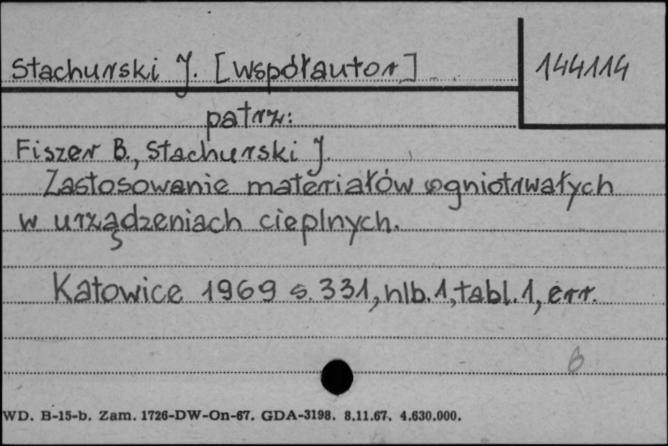 Stachurski J. [współautor]
144114
patrz:
Fiszer B., Stachurski J.
Zastosowanie materiałów ogniotrwałych
w urządzeniach cieplnych.
Katowice 1969 s. 331, nlb. 1, tabl. 1, err.
B
WD. B-15-b. Zam. 1726-DW-On-67. GDA-3198. 8.11.67. 4.630.000.